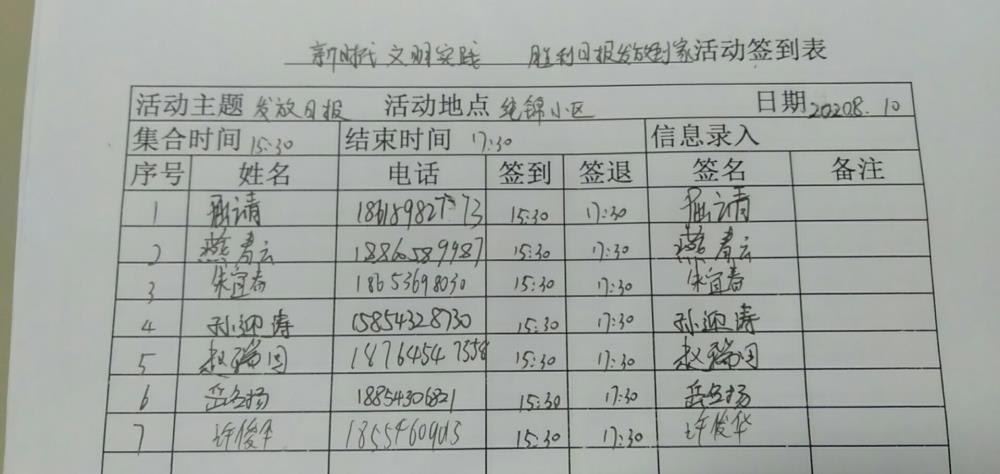 新时代文明实践 胜利日报发放到家活动签到表
活动主题 发放日报 活动地点 绕锦小区 日期 2020.8.10
集合时间 15:30 结束时间 17:30 信息录入
序号 姓名 电话 签到 签退 签名 备注
1 请 15:30 17:30 请
2 燕春云 18865899987 15:30 17:30 燕春云
3 朱宜春 18653698030 15:30 17:30 朱宜春
4 孙迎涛 15854328730 15:30 17:30 孙迎涛
5 赵瑞 18764547558 15:30 17:30 赵瑞
6 岳名扬 18854306821 15:30 17:30 岳名扬
7 许俊华 15:30 17:30 许俊华